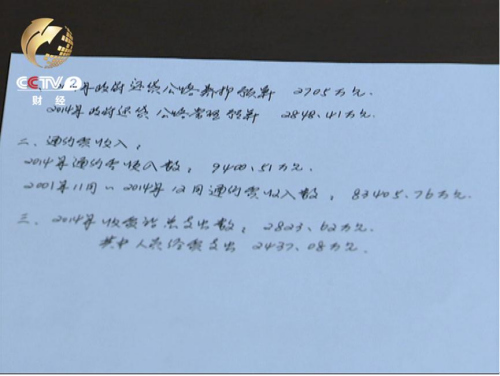 CCTV 2
财经
年政府还贷公路养护预算 2705万元.
2014年政府还贷公路管理预算 2848.41万元.
二、通行费收入:
2014年通行费收入数: 9400.51万元.
2001年11月~2014年12月通行费收入数: 83405.76万元.
三、2014年收费站总支出数: 2823.62万元.
其中人员经费支出 2437.08万元.